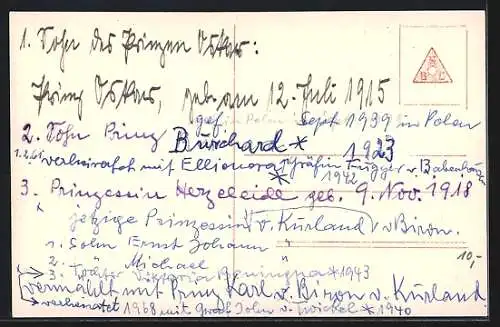 1. Sohn des Prinzen Oskar:
Prinz Oskar, geb. am 12. Juli 1915
gef. in Polen Sept 1939 in Polen
2. Sohn Prinz Burchard * 1923
1.2.61 verheiratet mit Ellionora Gräfin Fugger v. Babenhausen
* 1942
3. Prinzessin Herzeleide geb. 9. Nov. 1918
" jetzige Prinzessin v. Kurland v. Biron.
1. Sohn Ernst Johann "
2. " Michael "
10,-
3. Tochter Viktoria Benningna * 1943
vermählt mit Prinz Karl v. Biron v. Kurland
verheiratet 1968 mit Graf John v. * 1940